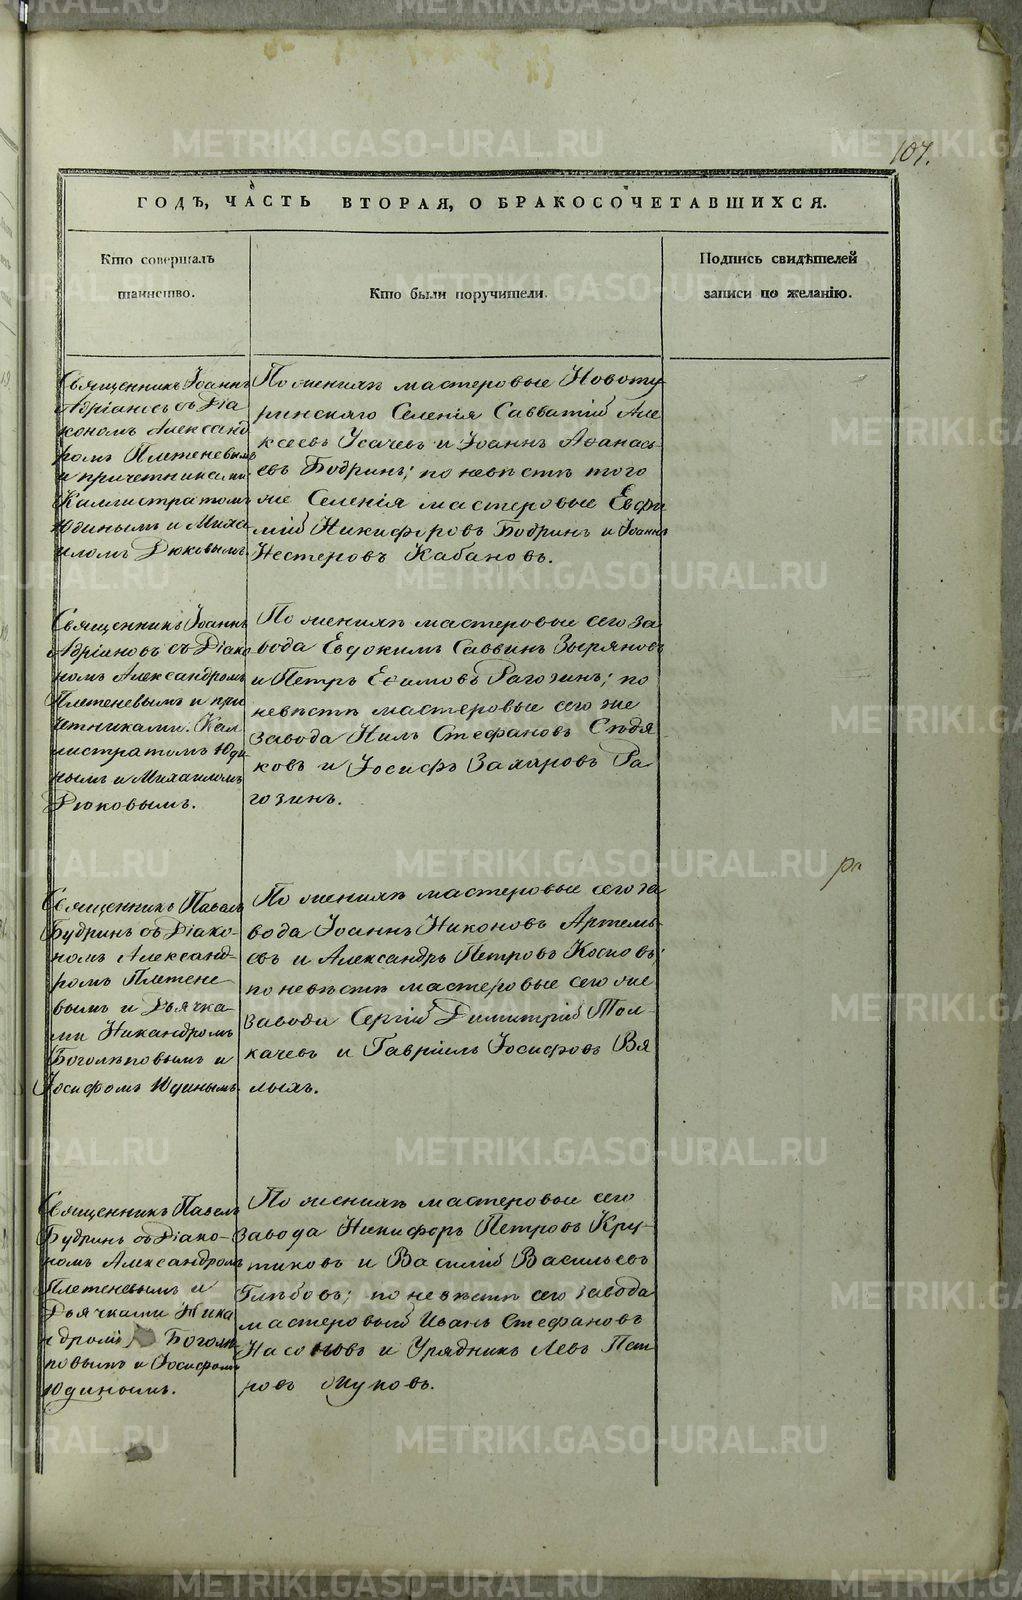 107.
ГОДЪ, ЧАСТЬ ВТОРАЯ, О БРАКОСОЧЕТАВШИХСЯ.
Кто совершалъ
таинство.
Кто были поручители.
Подпись свидѣтелей
записи по желанію.
Священникъ Іоаннъ
Адріановъ съ Діа
кономъ Александ
ромъ Плетеневымъ
и причетниками
Каллистратомъ
Юдинымъ и Миха
иломъ Дюковымъ.
По женихѣ мастеровые Новоту
ринскаго Селенія Савватій Але
ксеевъ Усачевъ и Іоаннъ Аѳанась
евъ Бодринъ; по невѣстѣ того
же Селенія мастеровые Евфи
мій Никифоровъ Бодринъ и Іоаннъ
Нестеровъ Кабановъ.
Священникъ Іоаннъ
Адріановъ съ Діако
номъ Александромъ
Плетеневымъ и при
четниками Кал
листратомъ Юди
нымъ и Михаиломъ
Дюковымъ.
По женихѣ мастеровые сего за
вода Евдокимъ Саввинъ Зыряновъ
и Петръ Ефимовъ Рагозинъ; по
невѣстѣ мастеровые сего же
завода Нилъ Стефановъ Сѣдя
ковъ и Іосифъ Захаровъ Ра
гозинъ.
Священникъ Павелъ
Будринъ съ Діако-
номъ Александ-
ромъ Плетене
вымъ и Дьячка
ми Никандромъ
Боголѣповымъ и
Іосифомъ Юдинымъ.
По женихѣ мастеровые сего за
вода Іоаннъ Никоновъ Артемь
евъ и Александръ Петровъ Косковъ;
по невѣстѣ мастеровые сего же
завода Сергій Димитрій Тол-
качевъ и Гавріилъ Іосифовъ Вя
лыхъ.
Священникъ Павелъ
Будринъ съ Діако-
номъ Александромъ
Плетеневымъ и
Дьячками Ника
ндромъ Боголѣ
повымъ и Іосифомъ
Юдинымъ.
По женихѣ мастеровые сего
завода Никифоръ Петровъ Кру-
тиковъ и Василій Васильевъ
Глѣбовъ; по невѣстѣ сего завода
мастеровый Иванъ Стефановъ
и Урядникъ Левъ Пет
ровъ Жуковъ.
METRIKI.GASO-URAL.RU